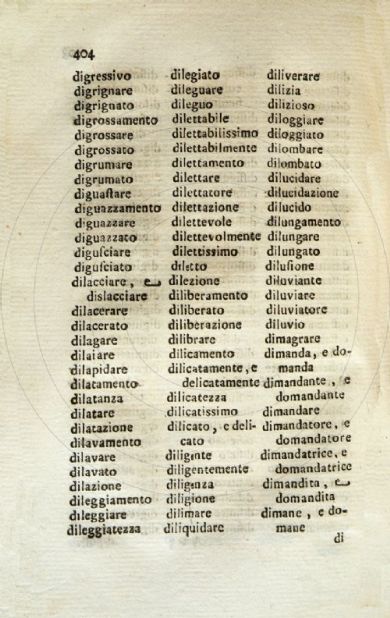 404
digressivo
digrignare
digrignato
digrossamento
digrossare
digrossato
digrumare
digrumato
diguaſtare
diguazzamento
diguazzare
diguazzato
diguſciare
diguſciato
dilacciare, e
dislacciare
dilacerare
dilacerato
dilagare
dilaiare
dilapidare
dilatamento
dilatanza
dilatare
dilatazione
dilavamento
dilavare
dilavato
dilazione
dileggiamento
dileggiare
dileggiatezza
dilegiato
dileguare
dileguo
dilettabile
dilettabilissimo
dilettabilmente
dilettamento
dilettare
dilettatore
dilettazione
dilettevole
dilettevolmente
dilettissimo
diletto
dilezione
diliberamento
diliberato
diliberazione
dilibrare
dilicamento
dilicatamente, e
delicatamente
dilicatezza
dilicatissimo
dilicato, e deli-
cato
diligente
diligentemente
diligenza
diligione
dilimare
diliquidare
diliverare
dilizia
dilizioso
diloggiare
diloggiato
dilombare
dilombato
dilucidare
dilucidazione
dilucido
dilungamento
dilungare
dilungato
diluſione
diluviante
diluviare
diluviatore
diluvio
dimagrare
dimanda, e do-
manda
dimandante, e
domandante
dimandare
dimandatore, e
domandatore
dimandatrice, e
domandatrice
dimandita, e
domandita
dimane, e do-
mane
di